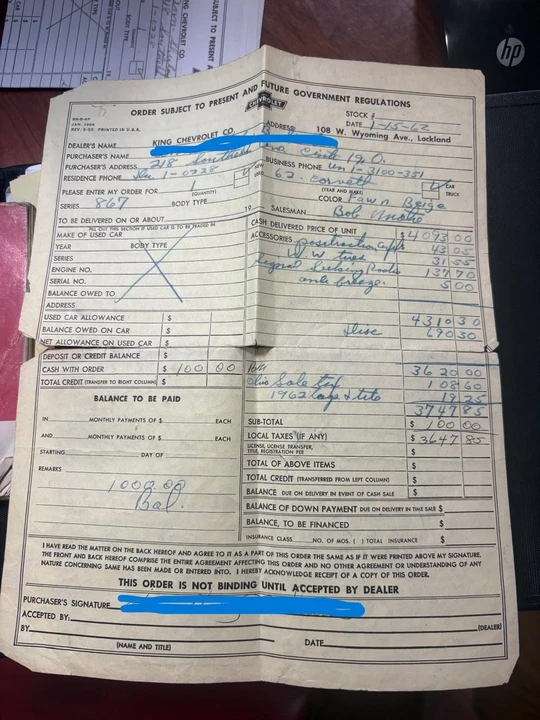 hp
ORDER SUBJECT TO PRESENT AND FUTURE GOVERNMENT REGULATIONS
CHEVROLET
STOCK #
DATE 1-15-62
REV. 5-55 PRINTED IN U.S.A.
DEALER'S NAME KING CHEVROLET CO. ADDRESS 108 W. Wyoming Ave., Lockland
PURCHASER'S NAME
PURCHASER'S ADDRESS 218
RESIDENCE PHONE 1-0728 NEW USED BUSINESS PHONE Un 1-3100-351
PLEASE ENTER MY ORDER FOR 1 (QUANTITY) 62 Corvett (YEAR AND MAKE) CAR TRUCK
SERIES 867 BODY TYPE COLOR Fawn Beige
TO BE DELIVERED ON OR ABOUT 19 SALESMAN Bob
FILL OUT THIS SECTION IF USED CAR IS TO BE TRADED IN
MAKE OF USED CAR CASH DELIVERED PRICE OF UNIT $ 4093 00
YEAR BODY TYPE ACCESSORIES positraction 43 05
SERIES W W tires 31 55
ENGINE NO. 137 70
SERIAL NO. anti freeze. 5 00
BALANCE OWED TO
ADDRESS
USED CAR ALLOWANCE $ 4310 30
BALANCE OWED ON CAR $ Disc 690 30
NET ALLOWANCE ON USED CAR $
DEPOSIT OR CREDIT BALANCE $
CASH WITH ORDER $ 100 00 3620 00
TOTAL CREDIT (TRANSFER TO RIGHT COLUMN) $ Ohio Sale tax 108 60
1962 tags & title 19 25
3747 85
BALANCE TO BE PAID
SUB-TOTAL $ 100 00
IN MONTHLY PAYMENTS OF $ EACH
LOCAL TAXES (IF ANY) $ 3647 85
LICENSE, LICENSE TRANSFER, TITLE, REGISTRATION FEE $
AND MONTHLY PAYMENTS OF $ EACH
TOTAL OF ABOVE ITEMS $
STARTING DAY OF
TOTAL CREDIT (TRANSFERRED FROM LEFT COLUMN) $
REMARKS
BALANCE DUE ON DELIVERY IN EVENT OF CASH SALE $
1000.00
Bal.
BALANCE OF DOWN PAYMENT DUE ON DELIVERY IN TIME SALE $
BALANCE, TO BE FINANCED $
INSURANCE CLASS NO. OF MOS. ( ) TOTAL INSURANCE $
I HAVE READ THE MATTER ON THE BACK HEREOF AND AGREE TO IT AS A PART OF THIS ORDER THE SAME AS IF IT WERE PRINTED ABOVE MY SIGNATURE.
THE FRONT AND BACK HEREOF COMPRISE THE ENTIRE AGREEMENT AFFECTING THIS ORDER AND NO OTHER AGREEMENT OR UNDERSTANDING OF ANY
NATURE CONCERNING SAME HAS BEEN MADE OR ENTERED INTO. I HEREBY ACKNOWLEDGE RECEIPT OF A COPY OF THIS ORDER.
THIS ORDER IS NOT BINDING UNTIL ACCEPTED BY DEALER
PURCHASER'S SIGNATURE
ACCEPTED BY:
(DEALER)
BY
(NAME AND TITLE) DATE